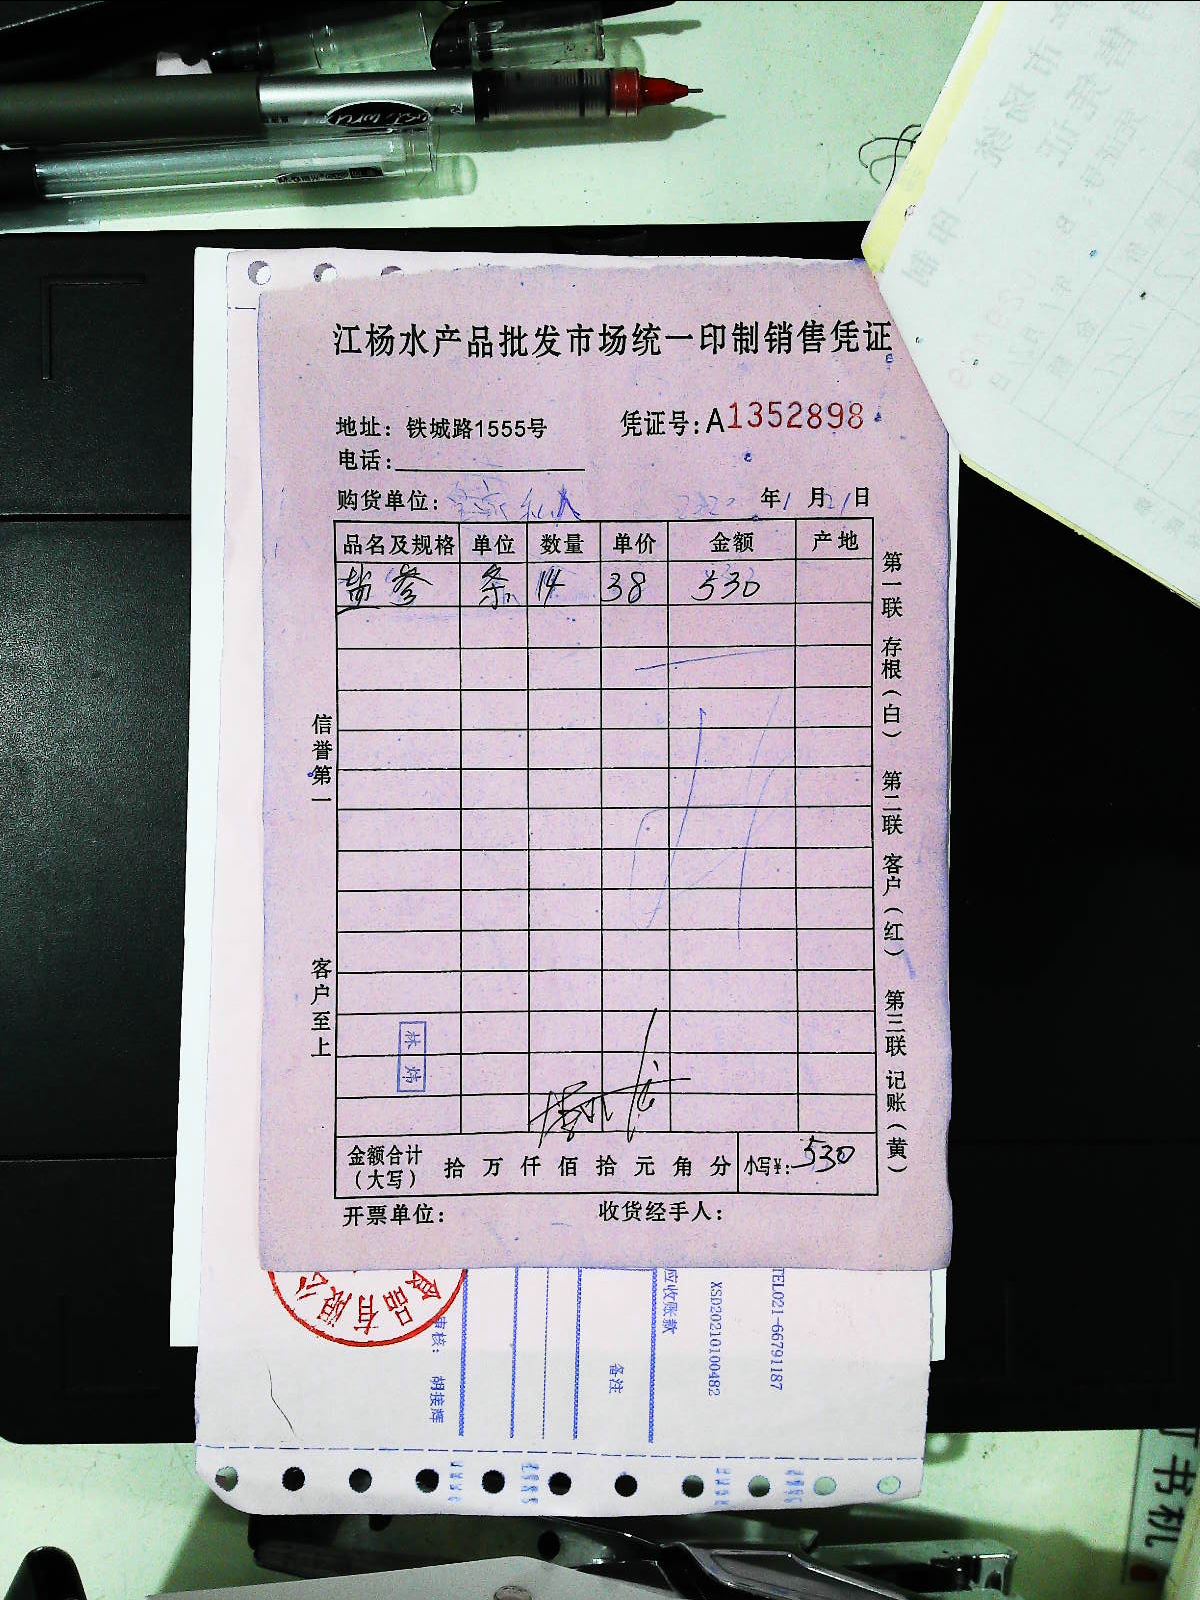 江杨水产品批发市场统一印制销售凭证
地址：铁城路1555号 凭证号：A1352898
电话：
购货单位： 年1月21日
品名及规格 单位 数量 单价 金额 产地
盐参 条 14 38 530
信誉第一
客户至上
第一联 存根（白） 第二联 客户（红） 第三联 记账（黄）
林炜
金额合计（大写） 拾 万 仟 佰 拾 元 角 分 小写¥：530
开票单位： 收货经手人：
TEL021-66791187
XSD20210100482
应收账款
备注
审核： 胡接辉
品有限公
订书机